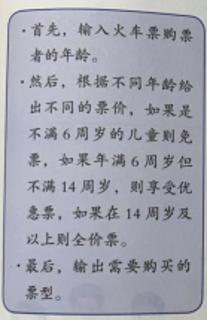 ·首先，输入火车票购票
者的年龄。
·然后，根据不同年龄给
出不同的票价，如果是
不满6周岁的儿童则免
票，如果年满6周岁但
不满14周岁，则享受优
惠票，如果在14周岁及
以上则全价票。
·最后，输出需要购买的
票型。